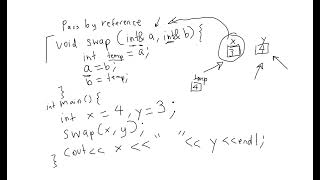 Pass by reference
void swap (int& a, int& b) {
int temp = a;
a = b;
b = temp;
}
int main() {
int x = 4, y = 3;
swap(x, y);
cout << x << " " << y << endl;
}
x
3
y
4
temp
4